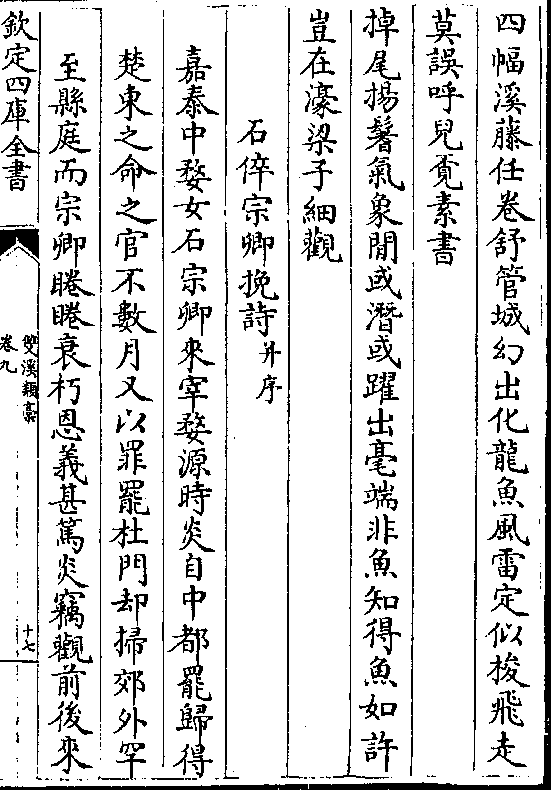 四幅溪藤任卷舒管城幻出化龍魚風雷定似梭飛走
莫誤呼兒覓素書
掉尾揚鬐氣象閒或潛或躍出毫端非魚知得魚如許
豈在濠梁子細觀
石倅宗卿挽詩并序
嘉泰中婺女石宗卿來宰婺源時炎自中都罷歸得
楚東之命之官不數月又以罪罷杜門却掃郊外罕
至縣庭而宗卿睠睠衰朽恩義甚篤炎竊觀前後來
欽定四庫全書
雙溪類稾
卷九
十七